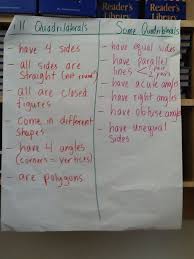 Reader's
Library
Reader's
Library
All Quadrilaterals
- have 4 sides
- all sides are
straight (not round)
- all are closed
figures
- Come in different
shapes
- have 4 angles
(corners = vertices)
- are polygons
Some Quadrilaterals
- have equal sides
- have parallel
lines < 1 pair
2 pairs
- have acute angles
- have right angles
- have obtuse angles
- have unequal
sides